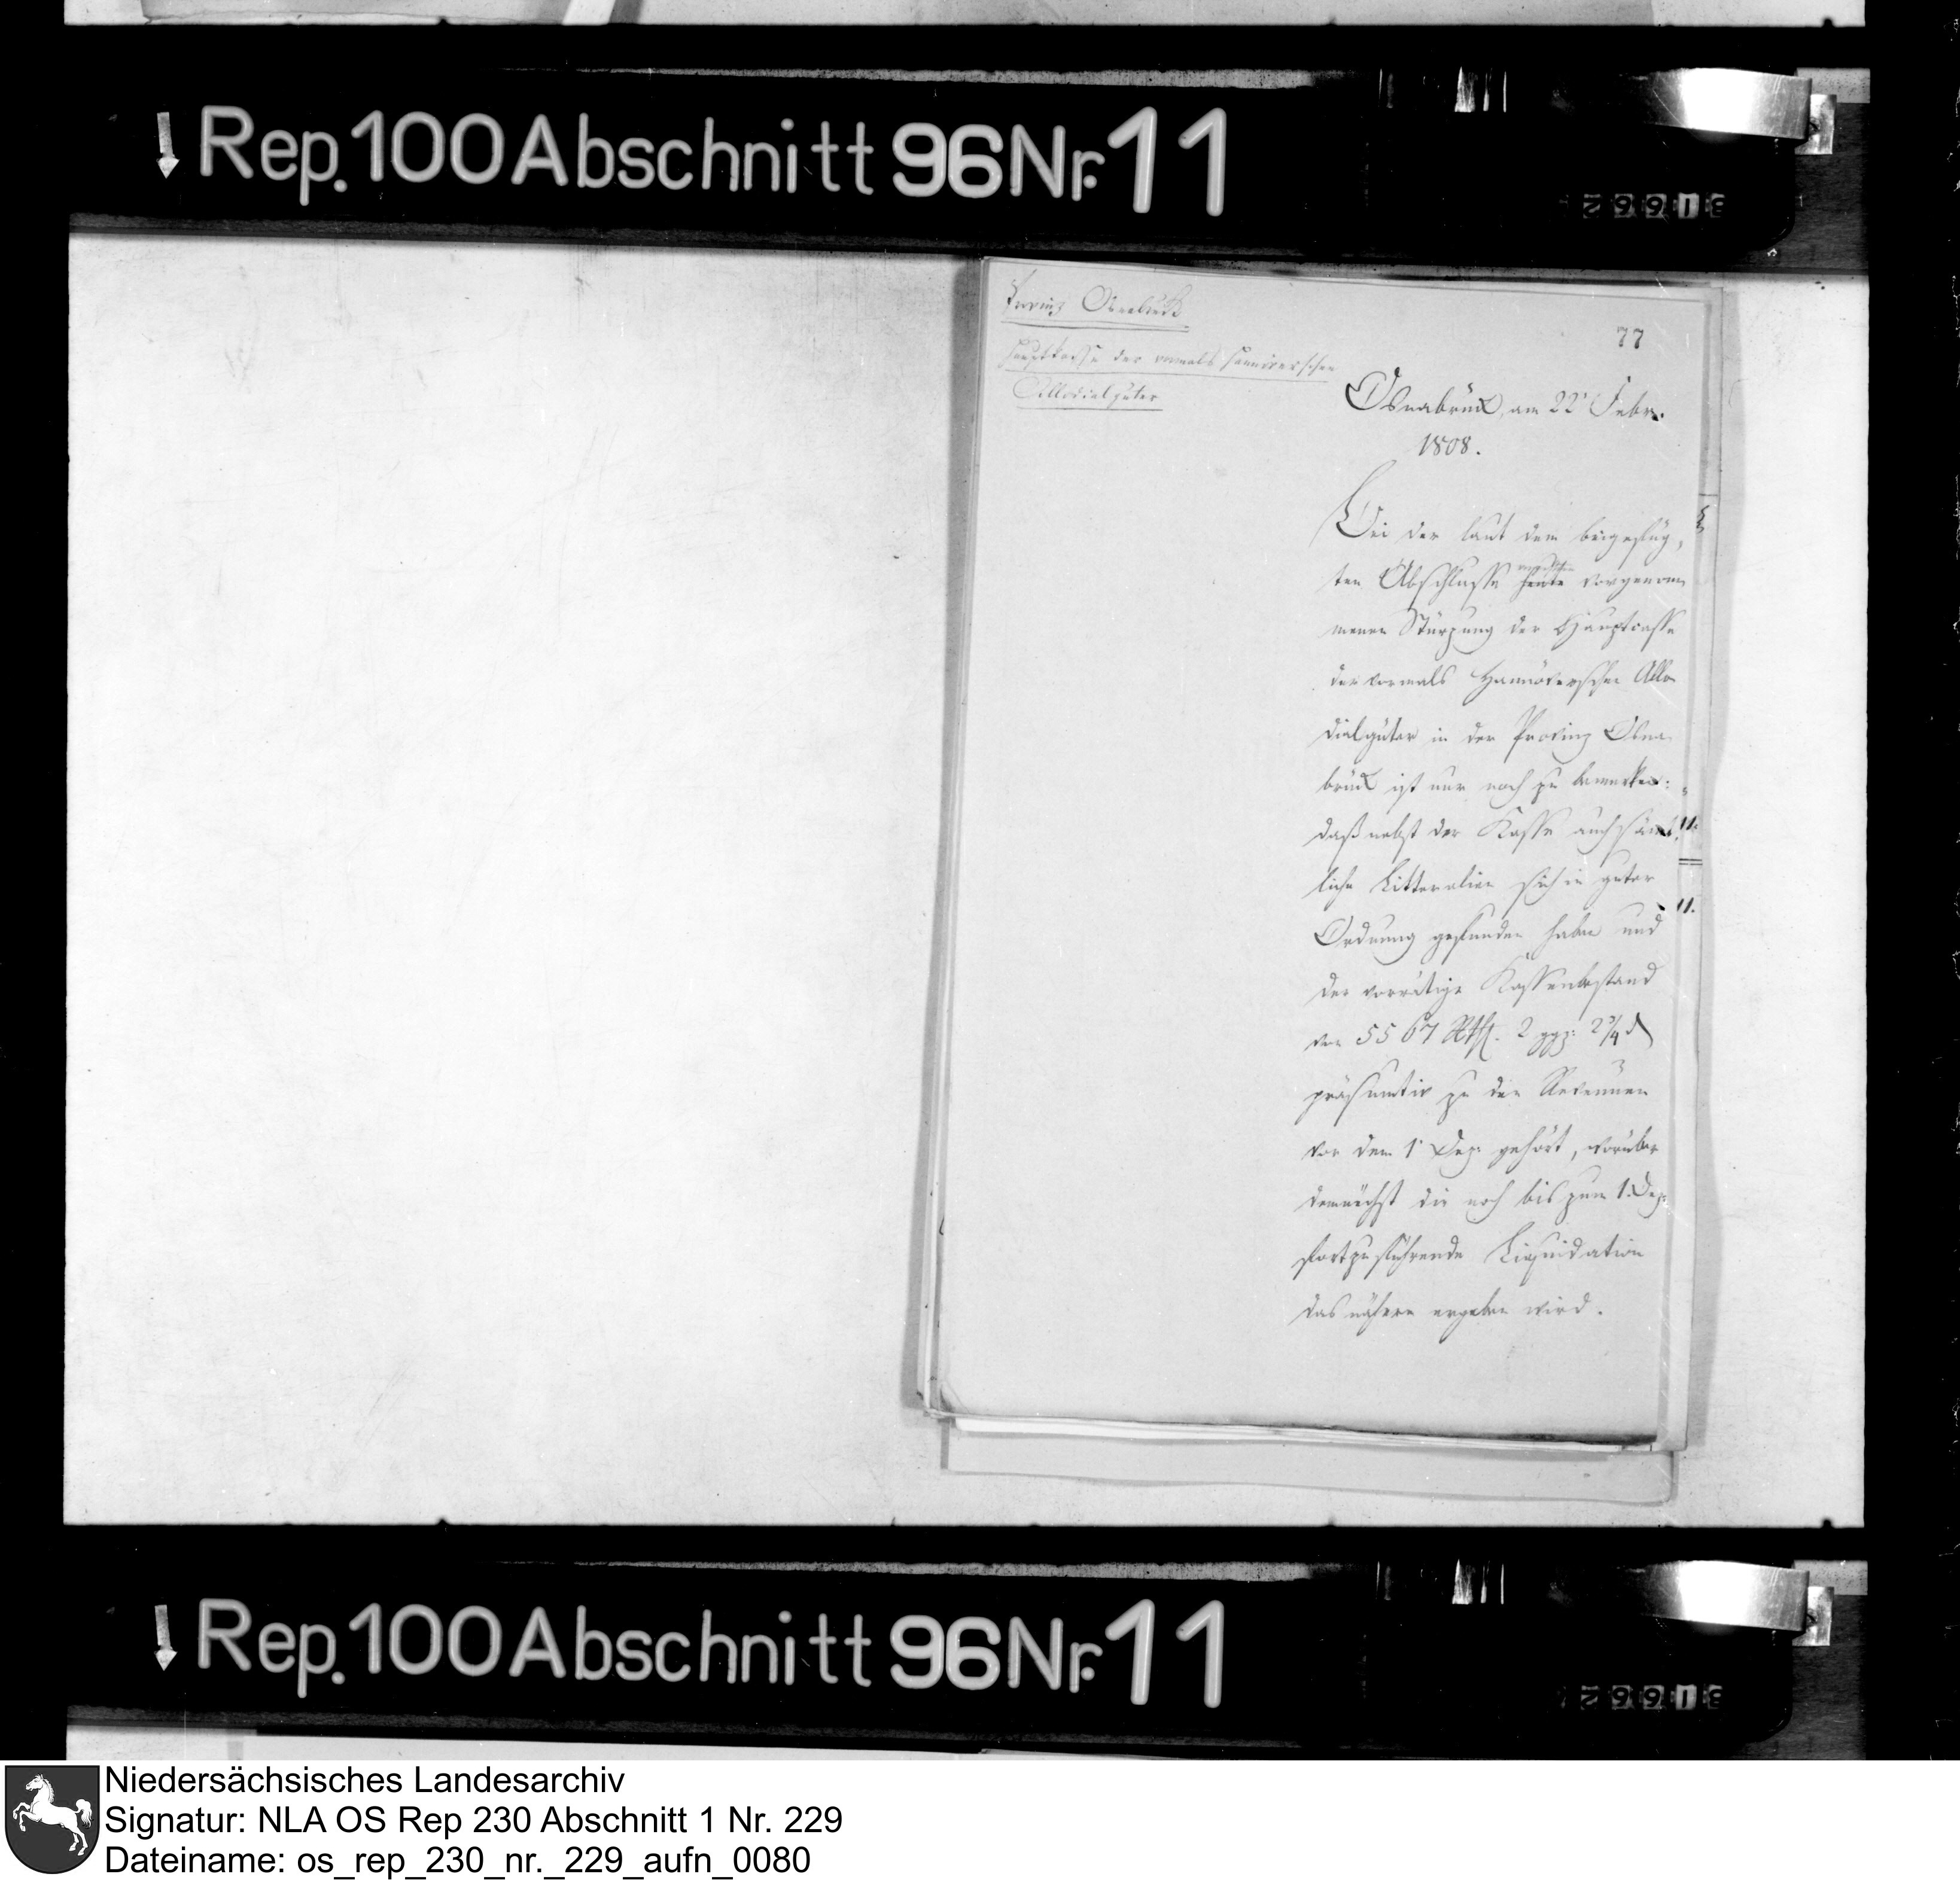 Rep. 100 Abschnitt 96 Nr. 11
31662
Provinz Osnabrück
Hauptkasse der vormals hannöverschen
Allodialgüter
77
Osnabrück, am 22t Febr.
1808.
Bei der laut dem beigefüg-
ten Abschlusse heute vorgenom
menen Stürzung der Hauptcasse
der vormals Hannöverschen Allo
dialgüter in der Provinz Osna
brück ist nur noch zu bemerken:
daß nebst der Kasse auch sämt-
liche Litteralien sich in guter
Ordnung gefunden haben und
der vorrätige Kassenbestand
von 5567 Rthl. 2 ggr: 2 3/4 d
präsumtiv zu den Revenüen
vor dem 1t Dez: gehört, worüber
demnächst die noch bis zum 1. Dez:
fortzuführende Liquidation
das nähere ergeben wird.
Rep. 100 Abschnitt 96 Nr. 11
31662
Niedersächsisches Landesarchiv
Signatur: NLA OS Rep 230 Abschnitt 1 Nr. 229
Dateiname: os_rep_230_nr._229_aufn_0080